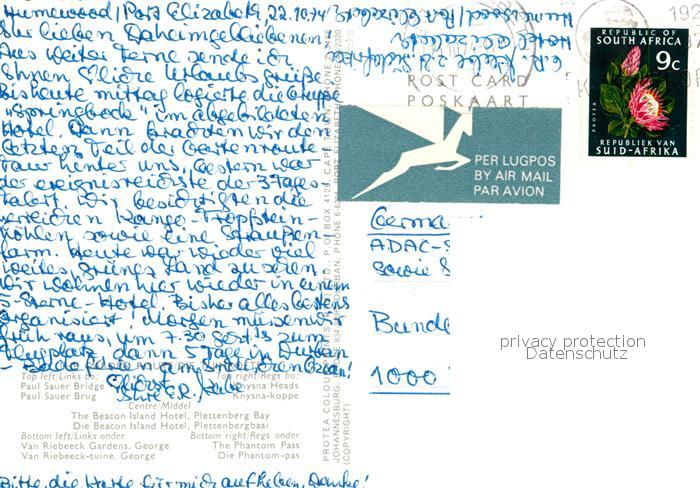 Humewood/Port Elizabeth, 22.10.74
Ihr lieben Daheimgebliebenen!
Aus weiter Ferne sende ich
Ihnen Urlaubsgrüße.
Bis heute mittag logierte die Gruppe
"Springbock" im abgebildeten
Hotel. Dann brachten wir den
letzten Teil der Gartenroute
hinter uns. Gestern war
der ereignisreichste der 3 Tages-
fahrt. Wir besichtigten die
Kango-Tropfstein-
höhlen sowie eine Straußen-
farm. Heute war wieder viel
weites, grünes Land zu sehen.
Wir wohnen hier wieder in einem
5-Sterne-Hotel. Bisher alles bestens
organisiert! Morgen müssen wir
früh raus, um 7.30 geht's zum
Flugplatz, dann 5 Tage in Durban
- am Indischen Ozean!
Ihre E.R.
Bitte, die Karte für mich aufheben, Danke!
Humewood/Port Elizabeth
Hotel Elizabeth
E.R.
POST CARD
POSKAART
REPUBLIC OF
SOUTH AFRICA
9c
PROTEA
REPUBLIEK VAN
SUID-AFRIKA
197
PER LUGPOS
BY AIR MAIL
PAR AVION
Germa
ADAC-S
sowie S
Bunde
1000
privacy protection
Datenschutz
Top left/Links bo: Top right/Regs bo:
Paul Sauer Bridge Knysna Heads
Paul Sauer Brug Knysna-koppe
Centre/Middel
The Beacon Island Hotel, Plettenberg Bay
Die Beacon Island Hotel, Plettenbergbaai
Bottom left/Links onder Bottom right/Regs onder
Van Riebeeck Gardens, George The Phantom Pass
Van Riebeeck-tuine, George Die Phantom-pas
PROTEA COLOUR PRINTS (PTY) LTD., P.O. BOX 4126, CAPE TOWN
JOHANNESBURG, DURBAN, PHONE PORT ELIZABETH, PHONE
(COPYRIGHT)